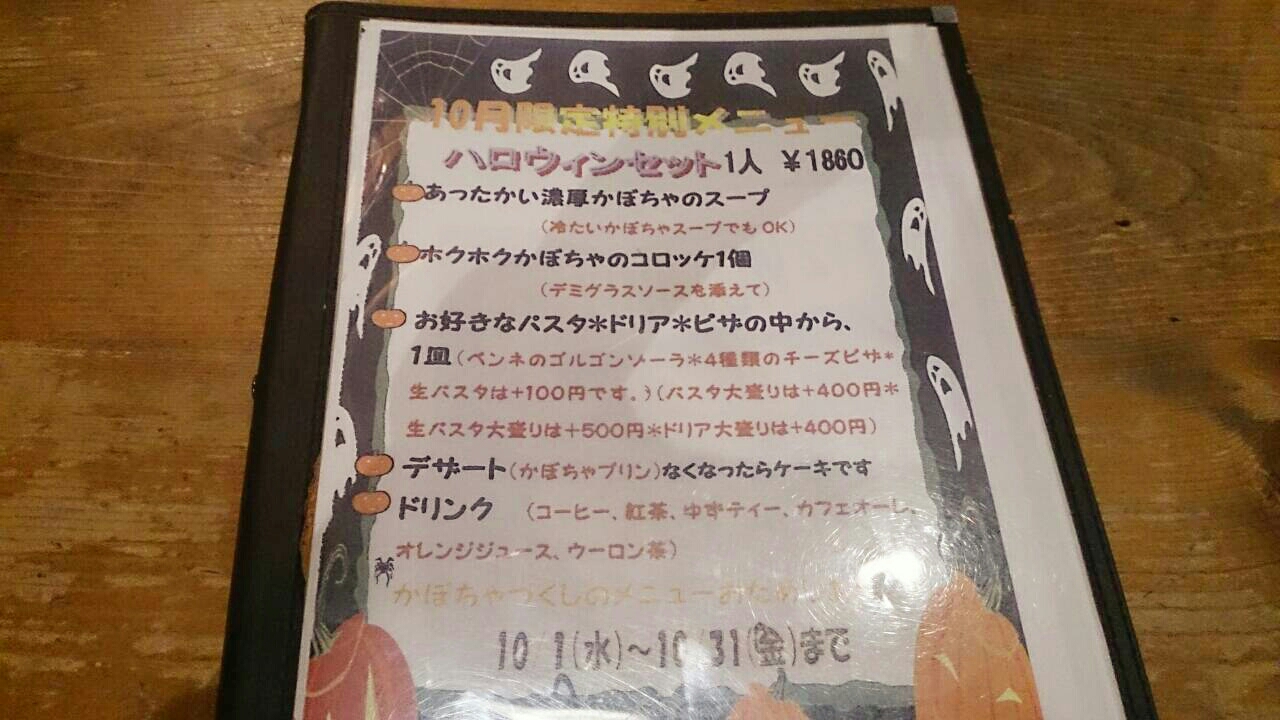 10月限定特別メニュー
ハロウィンセット1人 ¥1860
あったかい濃厚かぼちゃのスープ
(冷たいかぼちゃスープでもOK)
ホクホクかぼちゃのコロッケ1個
(デミグラスソースを添えて)
お好きなパスタ*ドリア*ピザの中から、
1皿(ペンネのゴルゴンゾーラ*4種類のチーズピザ*
生パスタは+100円です。)(パスタ大盛りは+400円*
生パスタ大盛りは+500円*ドリア大盛りは+400円)
デザート(かぼちゃプリン)なくなったらケーキです
ドリンク (コーヒー、紅茶、ゆずティー、カフェオーレ、
オレンジジュース、ウーロン茶)
かぼちゃづくしのメニューおため
10/1(水)~10/31(金)まで